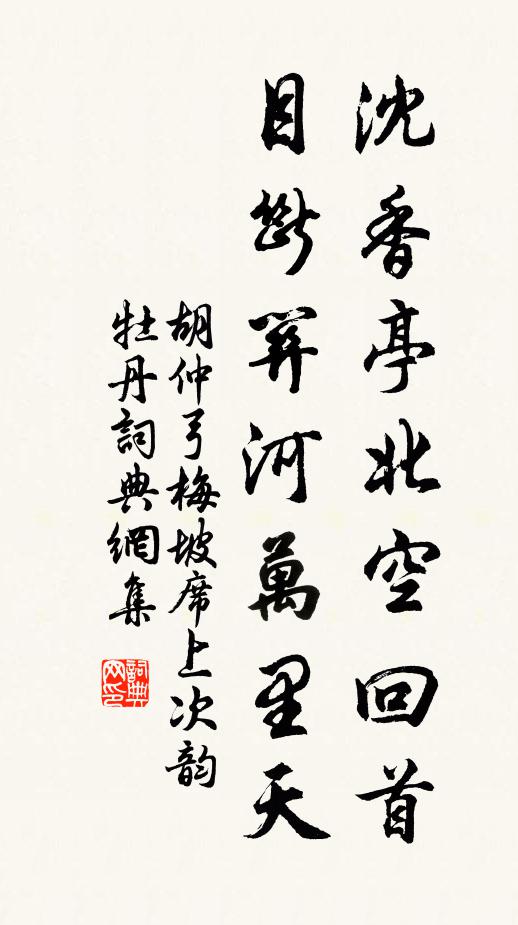 沈香亭北空回首
目斷關河萬里天
胡仲弓梅坡席上次韵
牡丹詞典網集
詞典网印